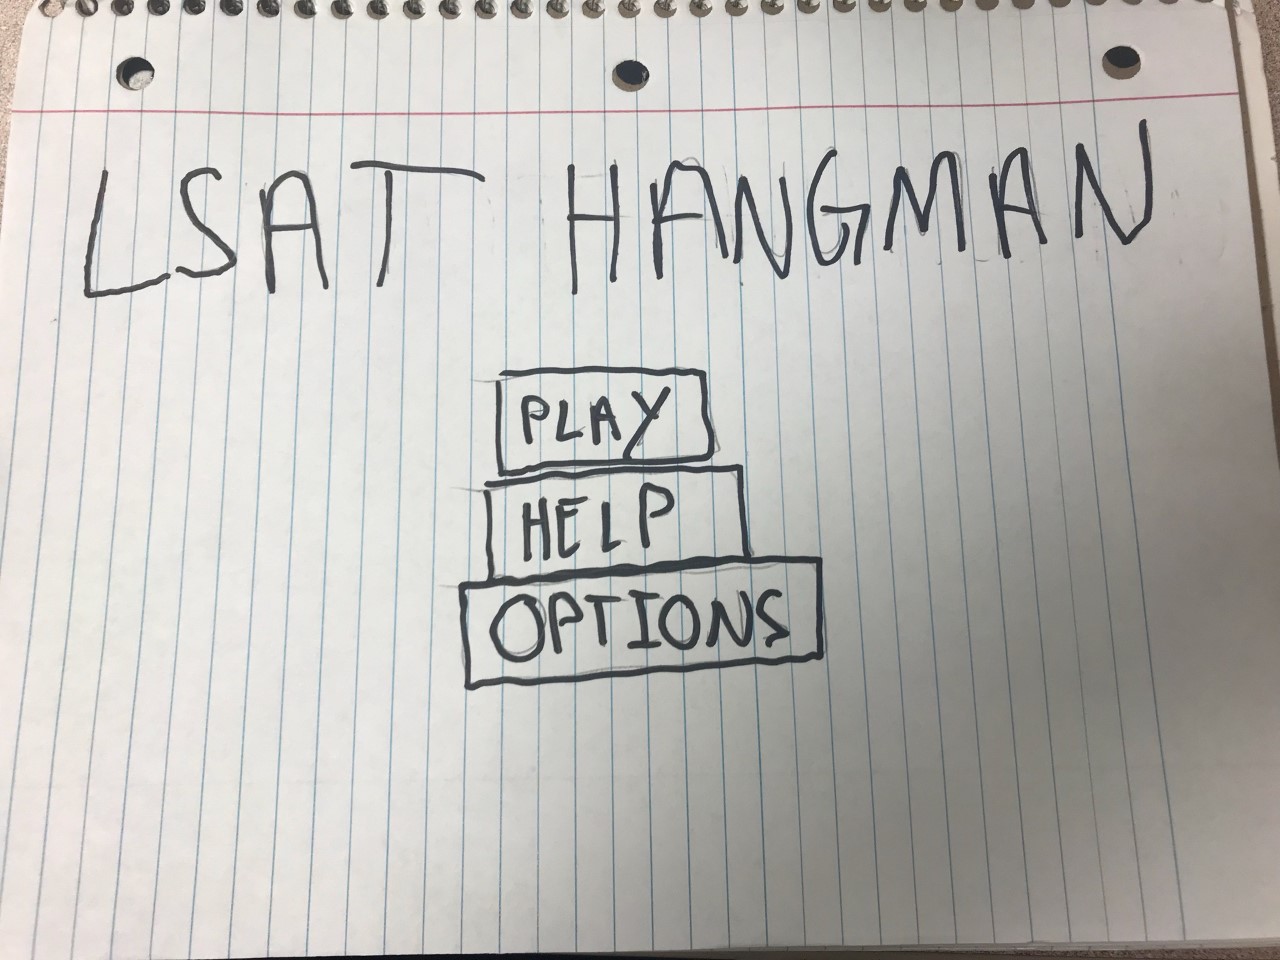 LSAT HANGMAN
PLAY
HELP
OPTIONS